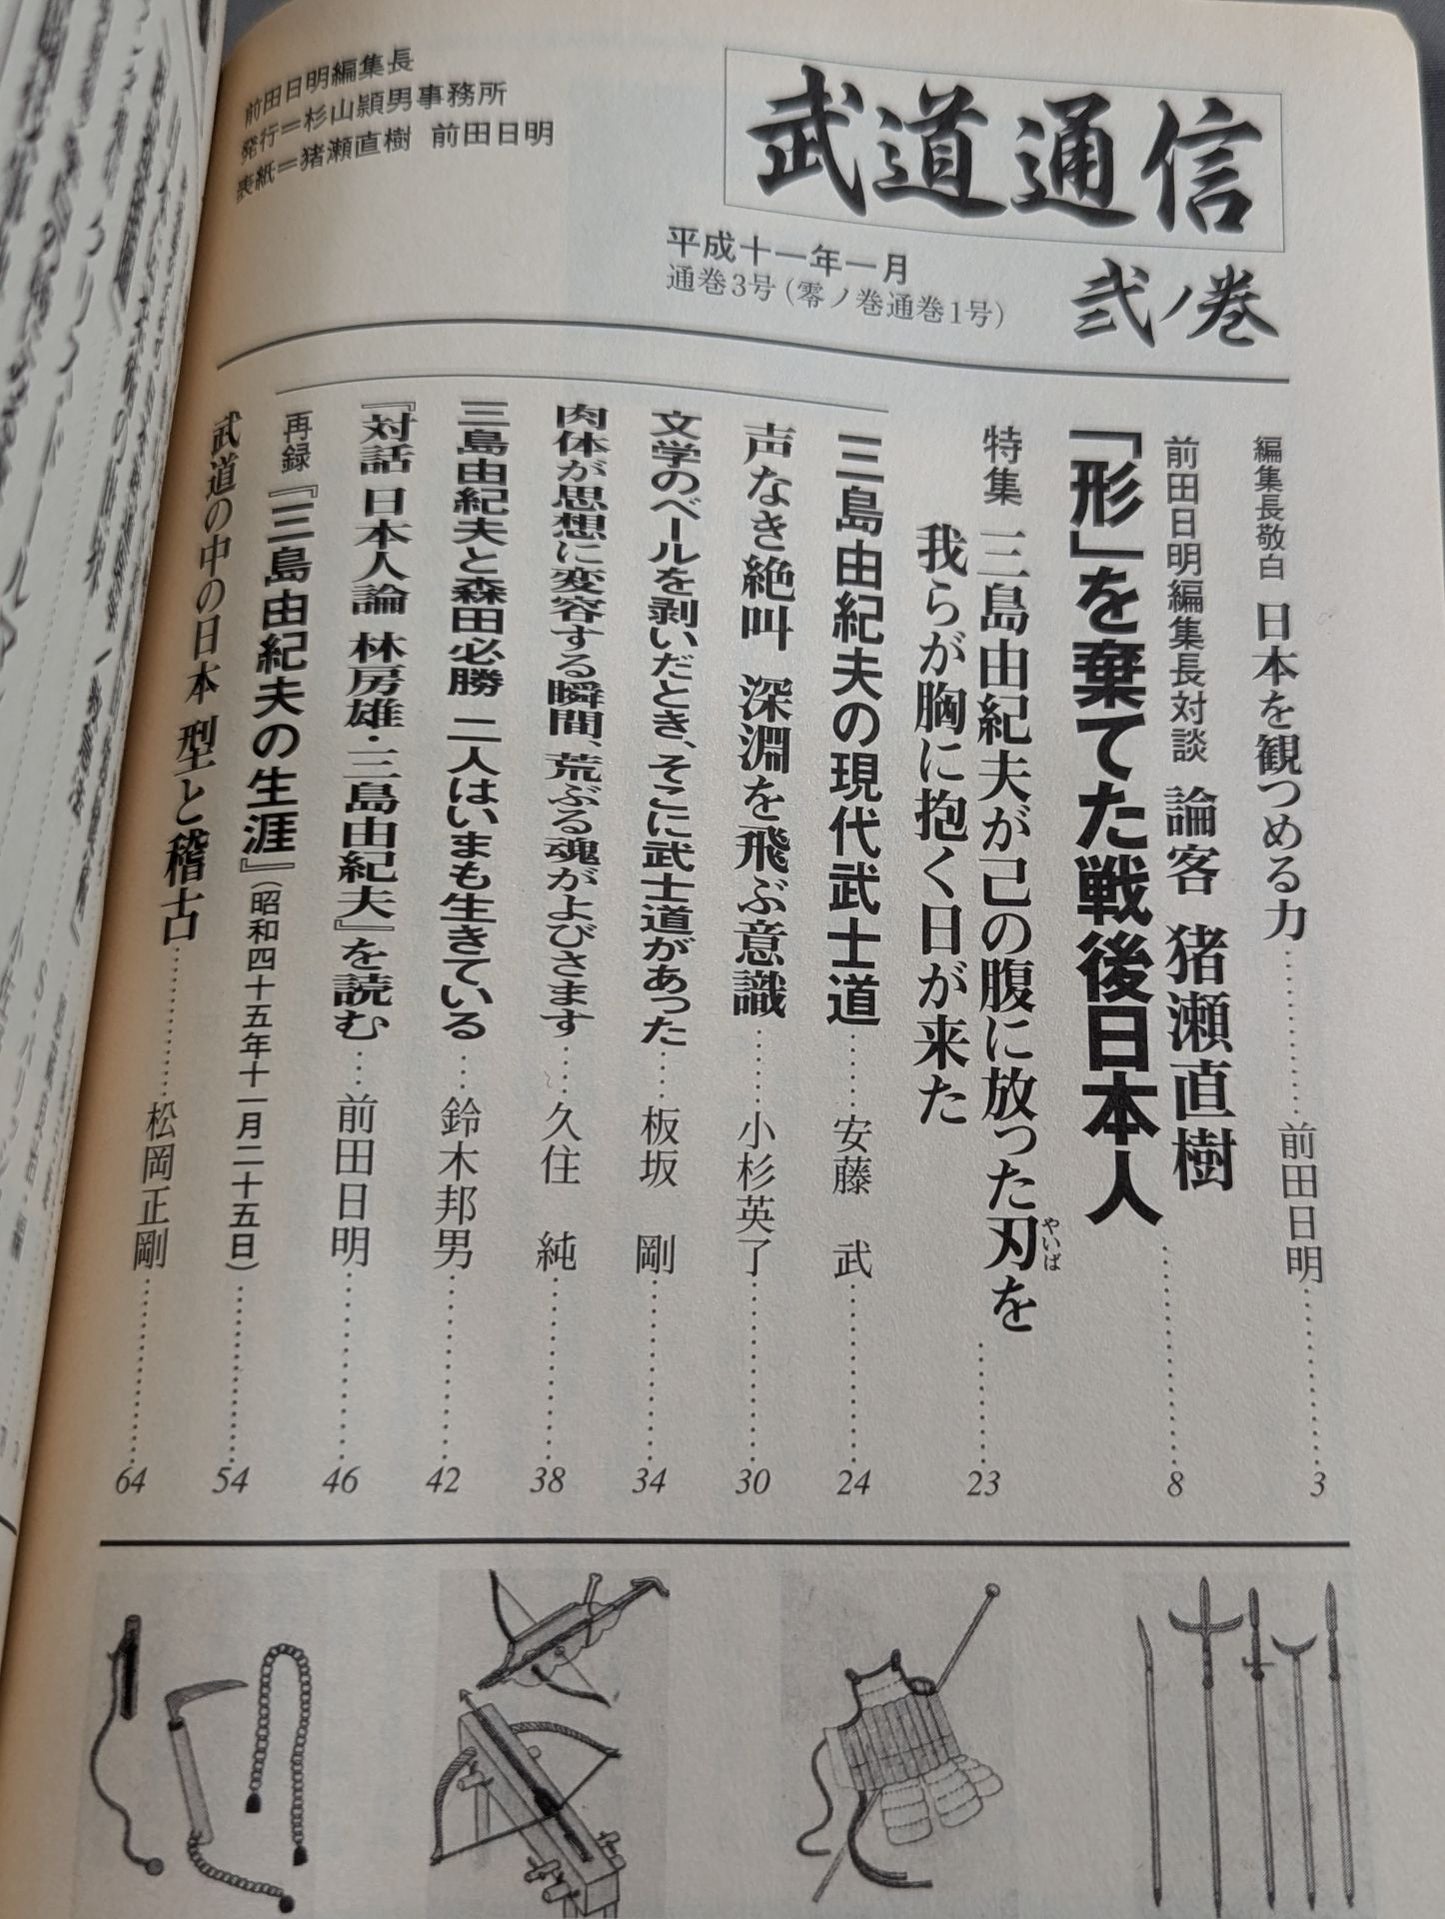 武道通信
弐ノ巻
平成十一年一月
通巻3号(零ノ巻通巻1号)
前田日明編集長
発行=杉山頴男事務所
表紙=猪瀬直樹 前田日明
編集長敬白 日本を観つめる力…………前田日明…………3
前田日明編集長対談 論客 猪瀬直樹
「形」を棄てた戦後日本人…………8
特集 三島由紀夫が己の腹に放った刃を
やいば
我らが胸に抱く日が来た…………23
三島由紀夫の現代武士道……安藤 武…………24
声なき絶叫 深淵を飛ぶ意識……小杉英了…………30
文学のベールを剥いだとき、そこに武士道があった……板坂 剛…………34
肉体が思想に変容する瞬間、荒ぶる魂がよびさます……久住 純…………38
三島由紀夫と森田必勝 二人はいまも生きている……鈴木邦男…………42
『対話 日本人論 林房雄・三島由紀夫』を読む……前田日明…………46
再録『三島由紀夫の生涯』(昭和四十五年十一月二十五日)…………54
武道の中の日本 型と稽古…………松岡正剛…………64